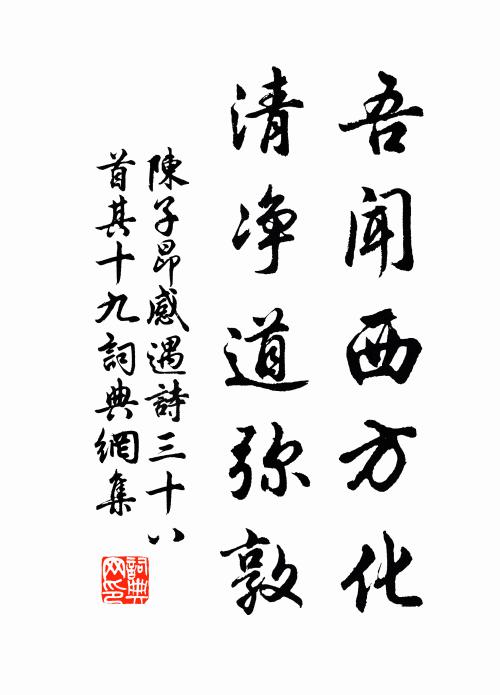 吾闻西方化
清净道弥敦
陳子昂感遇詩三十八
首其十九詞典網集
詞典网印